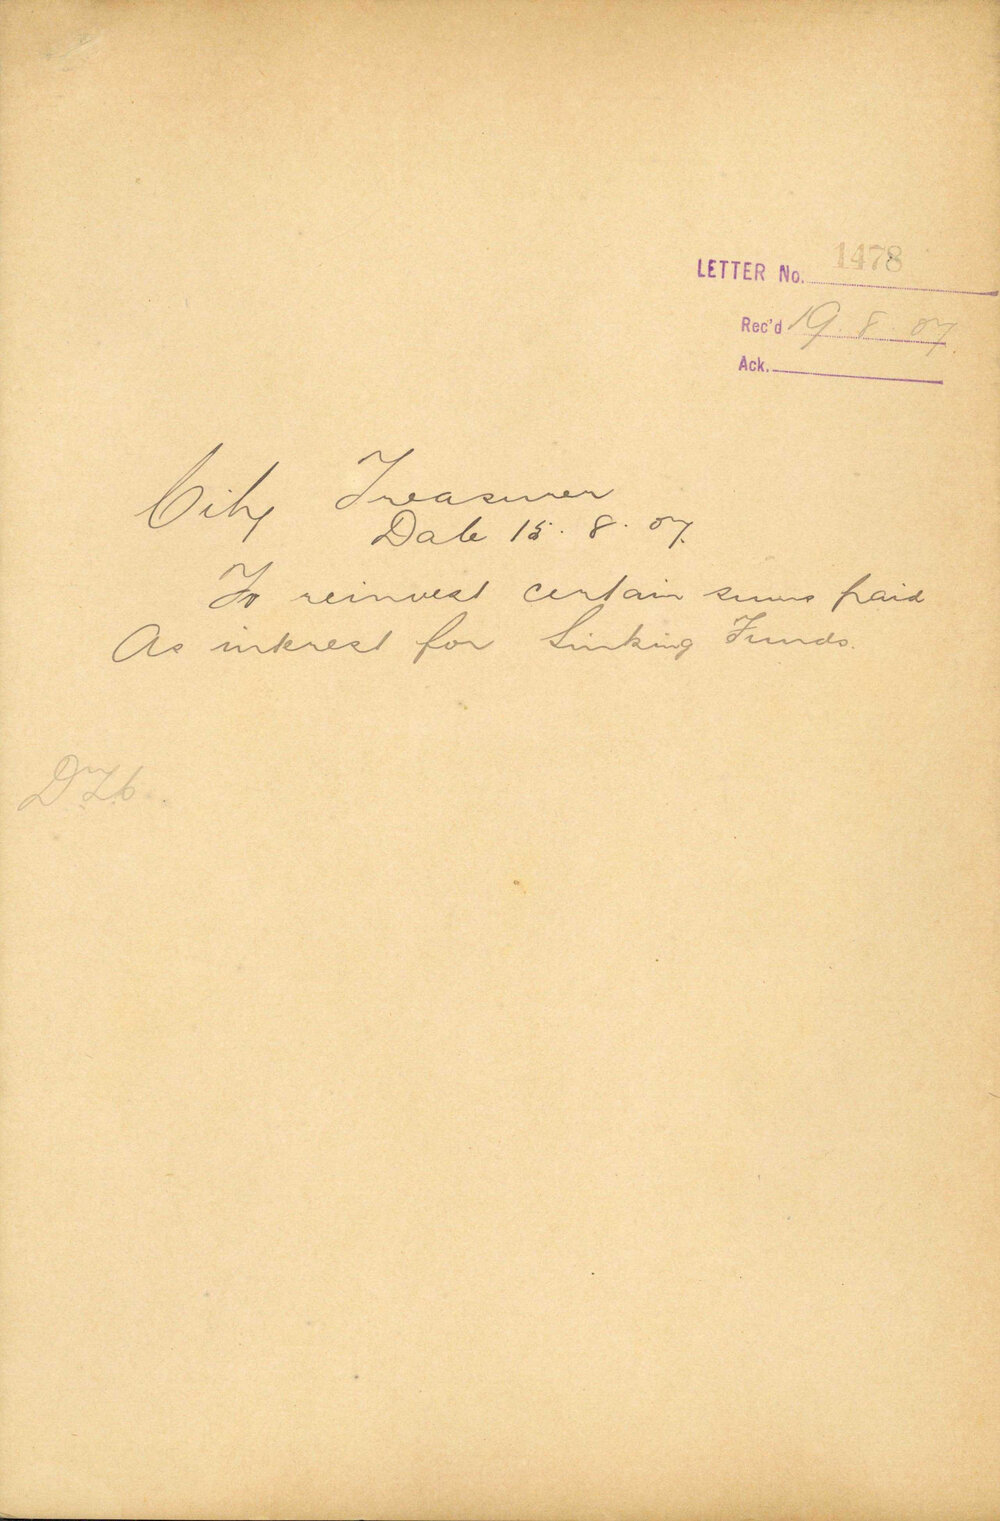 LETTER No. 1478
Rec'd 19.8.07.
Ack.
City Treasurer
Date 15.8.07.
To reinvest certain sums paid
As interest for Sinking Funds.